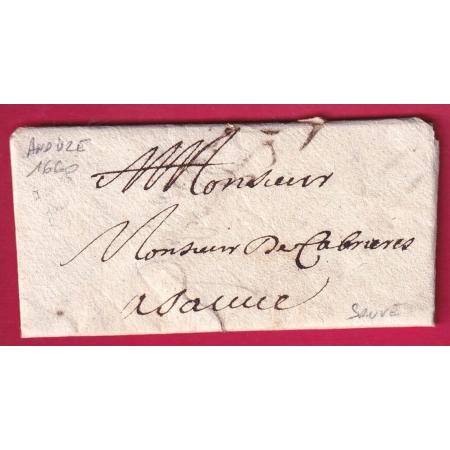 ANDUZE
1660
A Monsieur
Monsieur De Cabrieres
a Sauve
SAUVE